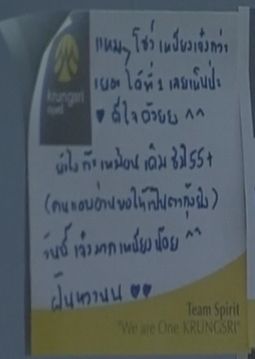 krungsri
แหมๆ โชว์เหนียงเจ๋งกว่า
เยอะ ได้ที่ 1 เลยเห็นป่ะ
♥ ดีใจด้วยยง ^^
ยังไงก็เหมือนเดิม
55+
(คนแอบอ่านขอให้เป็นตากุ้งยิง)
วันนี้เจ๋งมากเหนียงน้อย ^^
ฝันหวานน ♥♥
Team Spirit
"We are One KRUNGSRI"